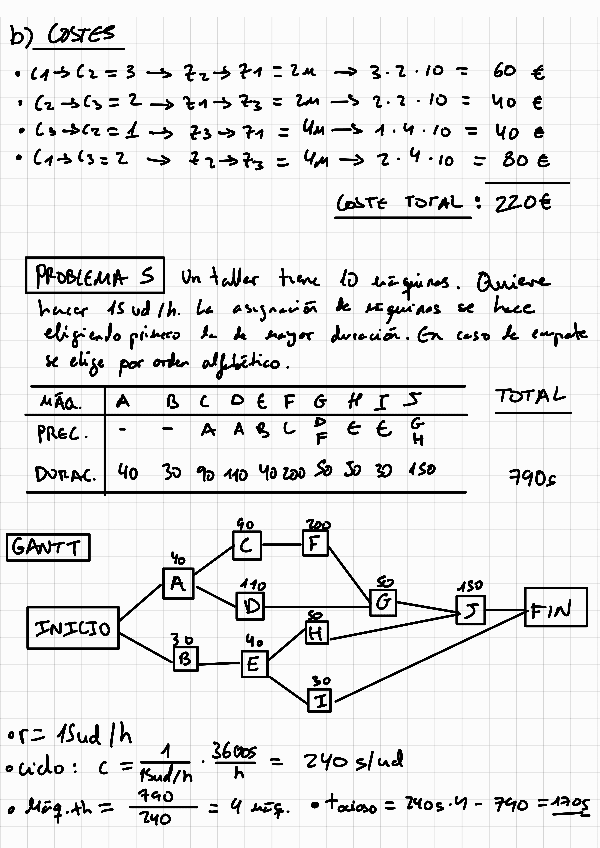 b) COSTES
• C1→C2 = 3 → Z2→Z1 = 2u → 3·2·10 = 60 €
• C2→C3 = 2 → Z1→Z3 = 2u → 2·2·10 = 40 €
• C3→C2 = 1 → Z3→Z1 = 4u → 1·4·10 = 40 €
• C1→C3 = 2 → Z2→Z3 = 4u → 2·4·10 = 80 €
COSTE TOTAL : 220€
PROBLEMA 5 Un taller tiene 10 máquinas. Quiere
hacer 15 ud/h. La asignación de máquinas se hace
eligiendo primero la de mayor duración. En caso de empate
se elige por orden alfabético.
MÁQ. A B C D E F G H I J TOTAL
PREC. - - A A B C D F E E G H
DURAC. 40 30 90 110 40 200 50 50 30 150 790s
GANTT
90 200
C F
40
A
110
D
50
G
150
J
INICIO
FIN
50
H
30
B
40
E
30
I
• r = 15ud/h
• ciclo : C = 1/15ud/h · 3600s/h = 240 s/ud
• Máq.th = 790/240 = 4 máq. • tocioso = 240s·4 - 790 = 170s